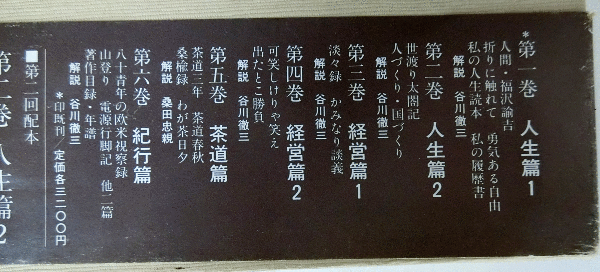 *第一巻 人生篇1
人間・福沢諭吉
折りに触れて 勇気ある自由
私の人生読本 私の履歴書
解説 谷川徹三
第二巻 人生篇2
世渡り太閤記
人づくり・国づくり
解説 谷川徹三
第三巻 経営篇1
淡々録 かみなり談義
解説 谷川徹三
第四巻 経営篇2
可笑しけりゃ笑え
出たとこ勝負
解説 谷川徹三
第五巻 茶道篇
茶道三年 茶道春秋
桑楡録 わが茶日夕
解説 桑田忠親
第六巻 紀行篇
八十青年の欧米視察録
山登り 電源行脚記 他二篇
著作目録・年譜
解説 谷川徹三
*印既刊/定価各三二〇〇円
■第二回配本
第二巻 人生篇2